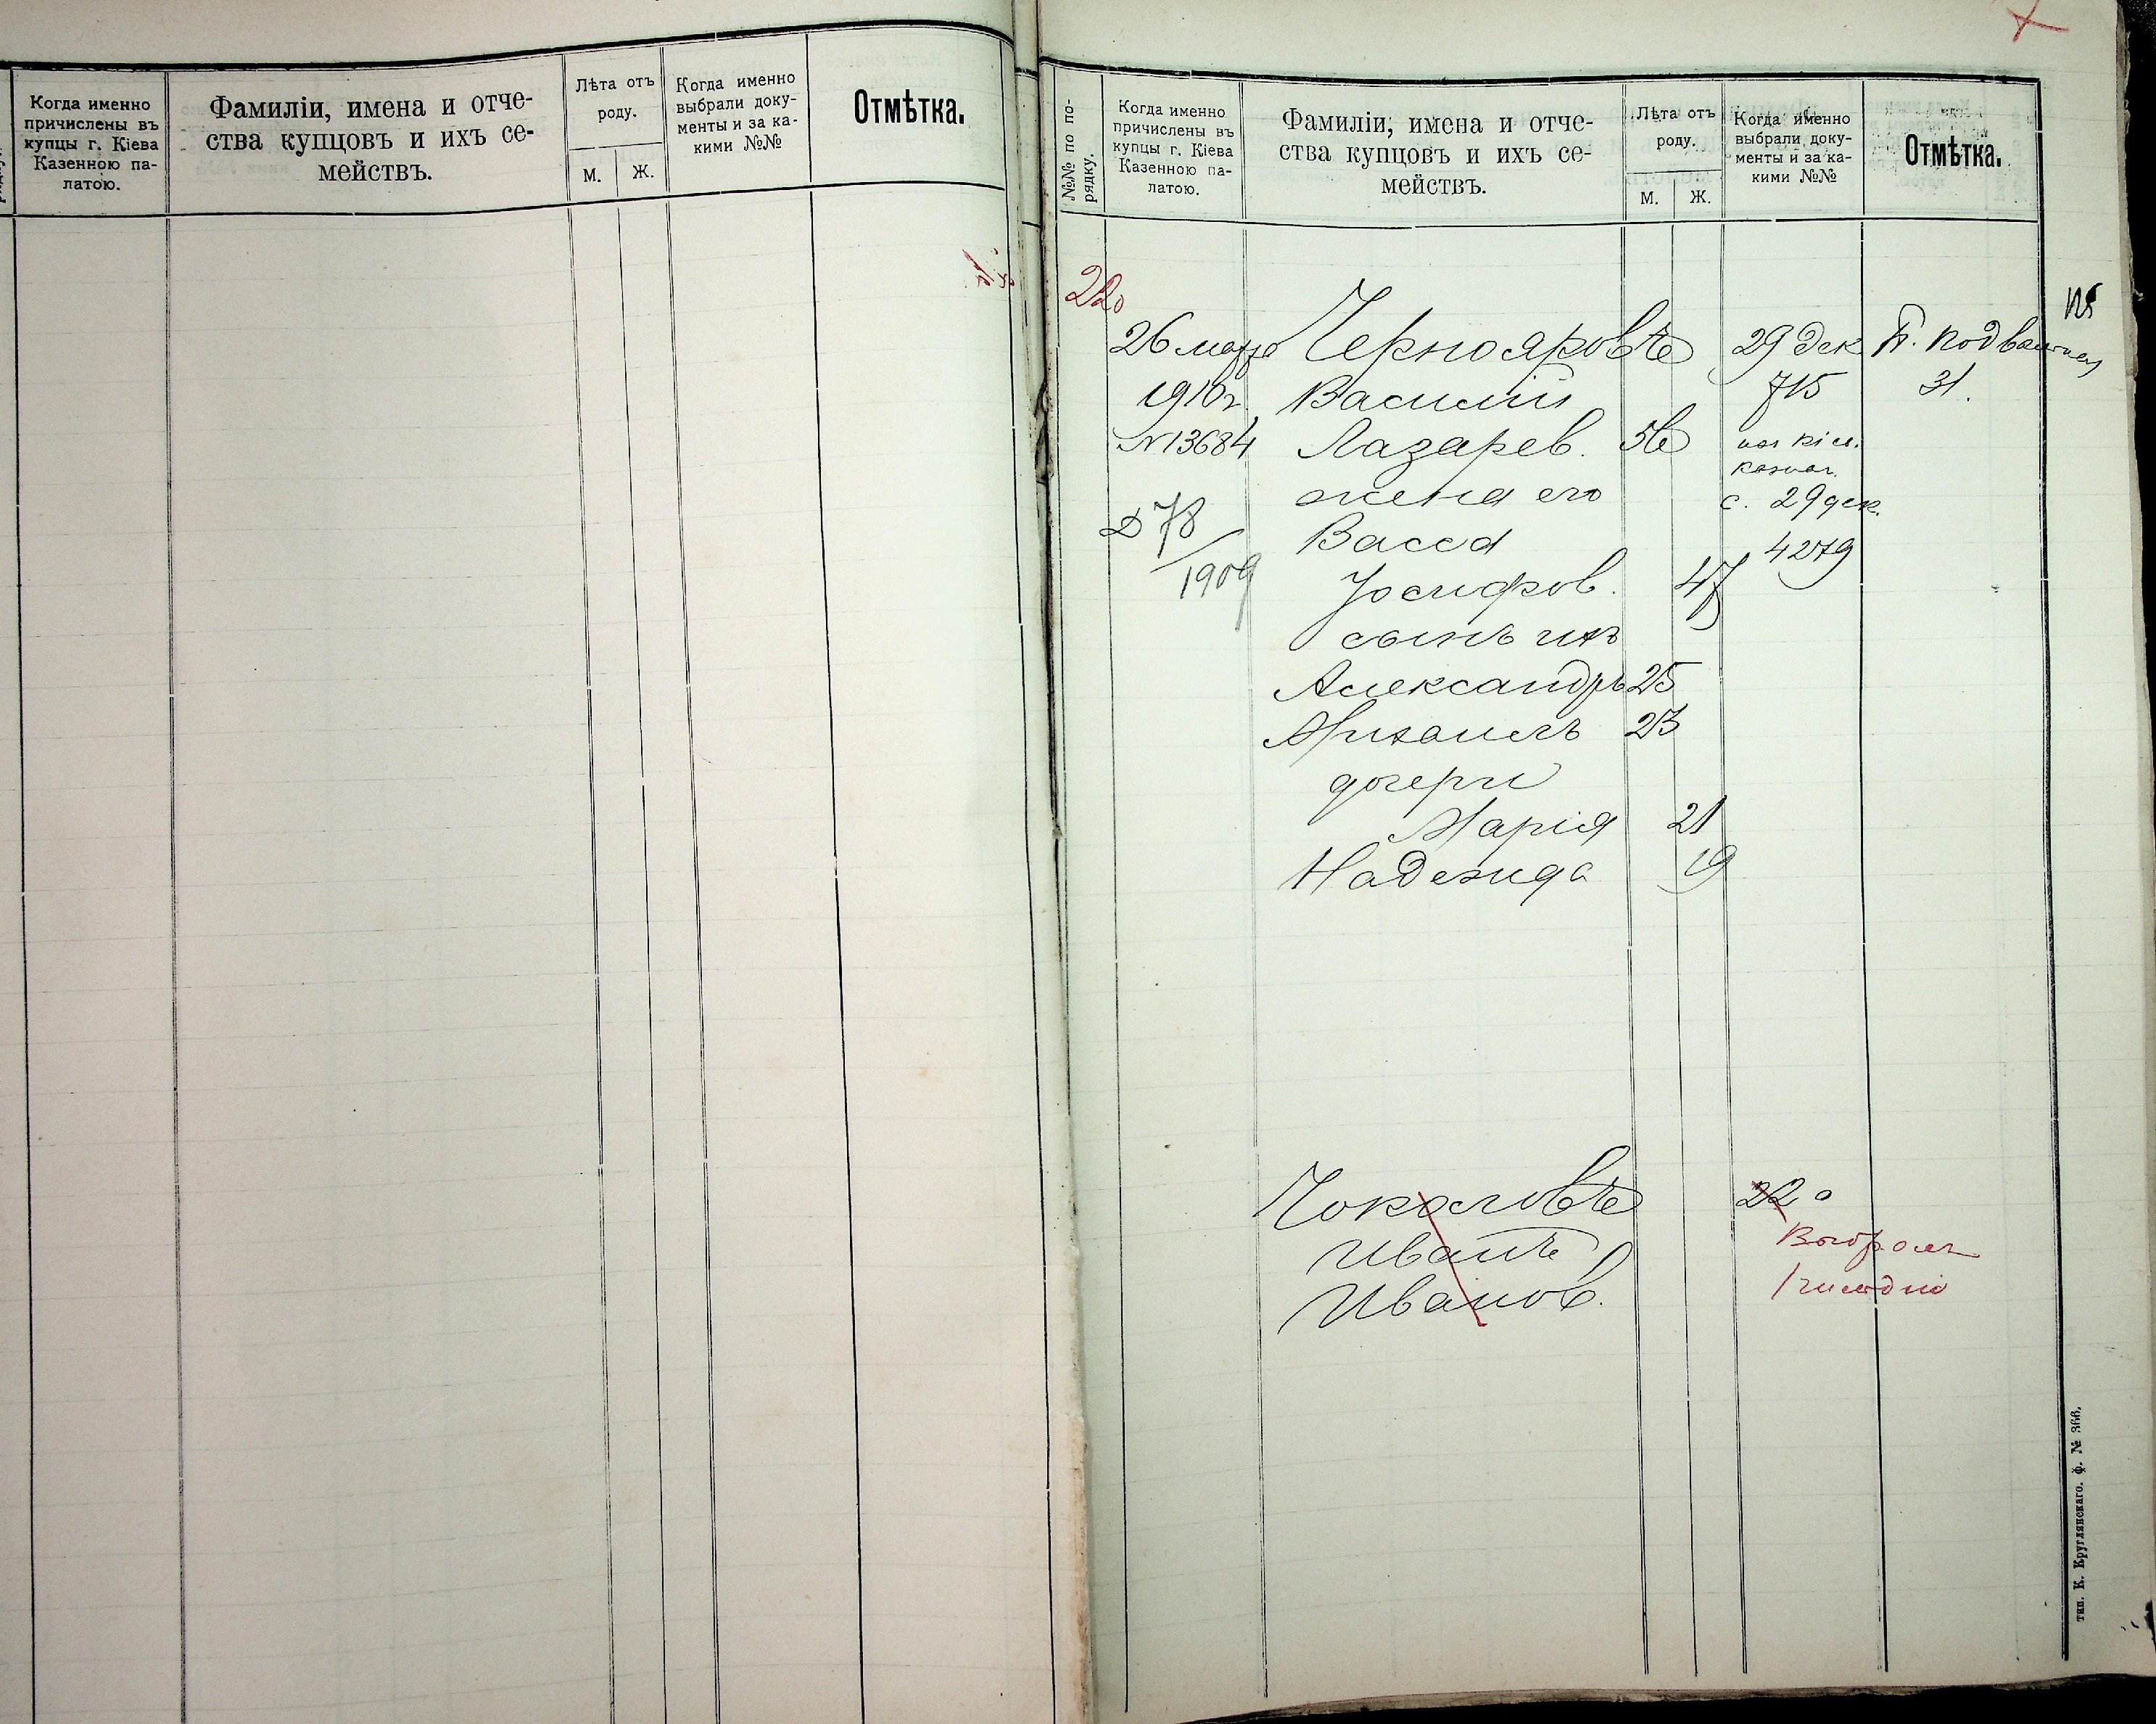 Когда именно
причислены въ
купцы г. Кіева
Казенною па-
латою.
Фамиліи, имена и отче-
ства купцовъ и ихъ се-
мействъ.
Лѣта отъ
роду.
М. Ж.
Когда именно
выбрали доку-
менты и за ка-
кими №№
Отмѣтка.
№№ по по-
рядку.
Когда именно
причислены въ
купцы г. Кіева
Казенною па-
латою.
Фамиліи, имена и отче-
ства купцовъ и ихъ се-
мействъ.
Лѣта отъ
роду.
М. Ж.
Когда именно
выбрали доку-
менты и за ка-
кими №№
Отмѣтка.
220
26 марта Чернояровъ 29 дек
1910 г. Василій 715 31.
№13684 Лазарев. 56
жена его с. 29 дек.
Д 78 Васса 4279
/1909 Іосифов. 47
сынъ ихъ
Александръ 25
Михаилъ 23
дочери
Марія 21
Надежда 19
Чоколовъ 22
Иванъ Выбрал
Иванов.
тип. К. Круглянскаго. ф. № 366.